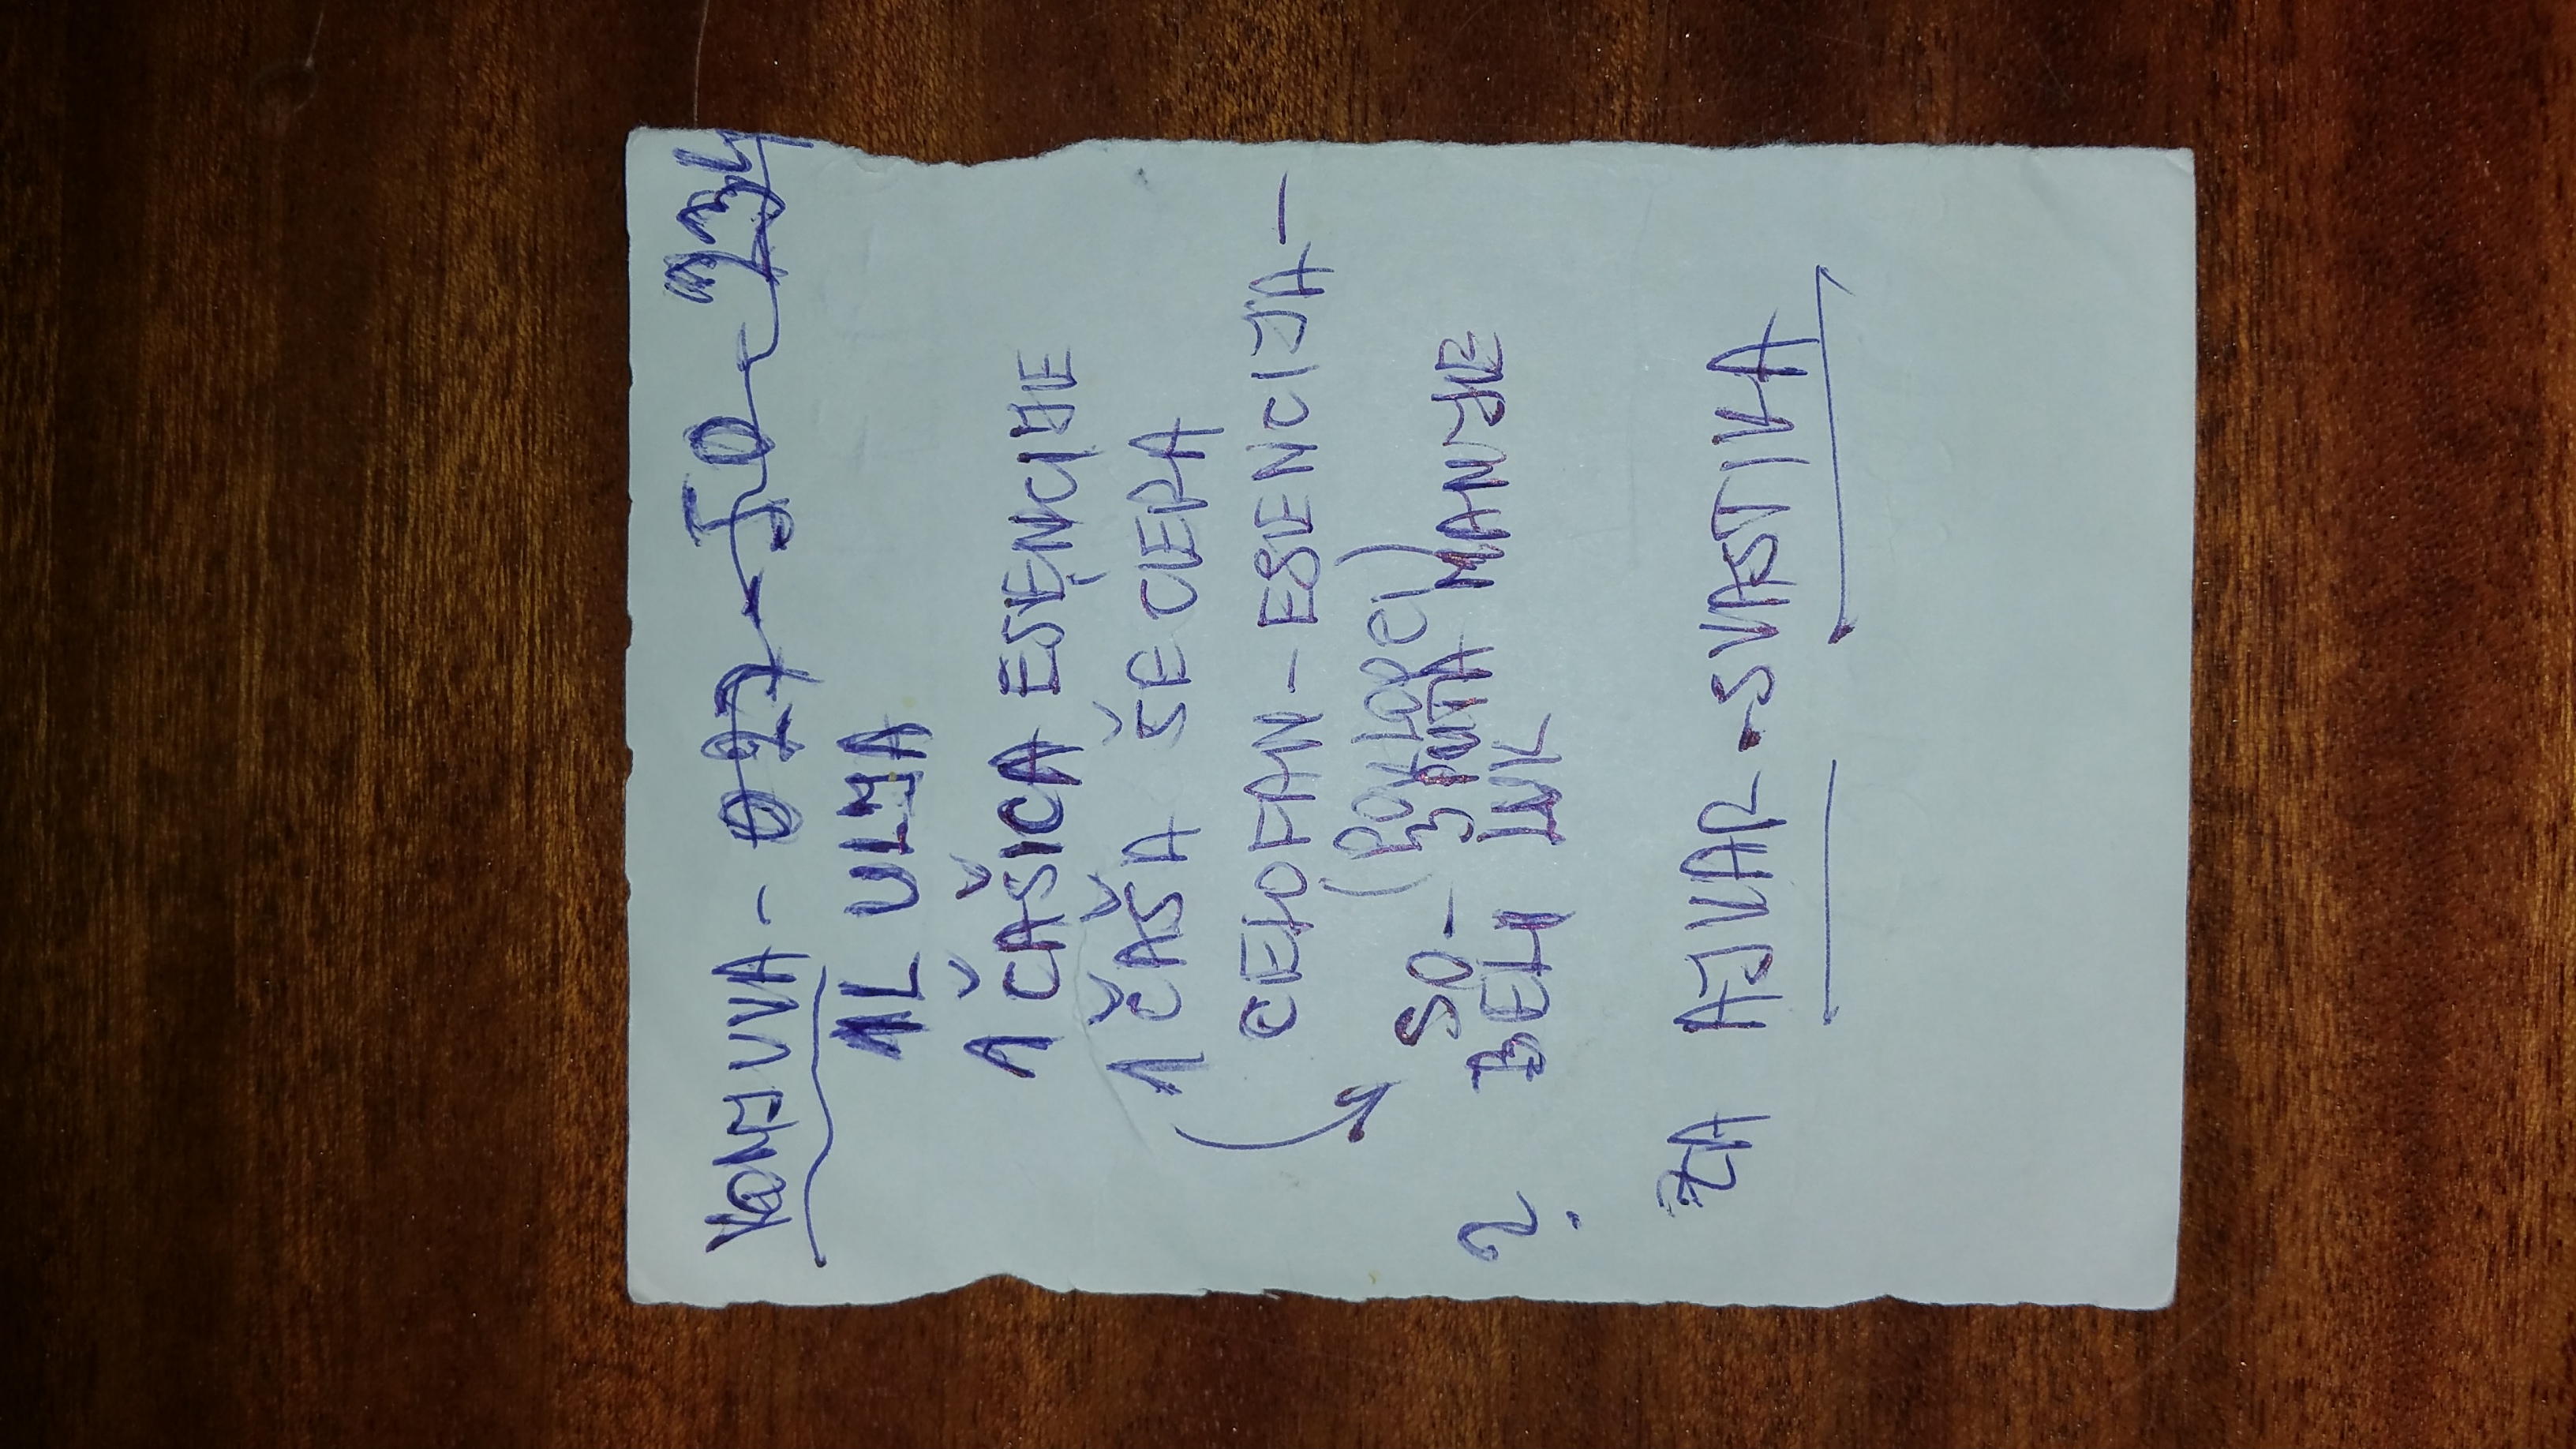 KONJUVA - 027 - 50 - 234
1L ULJA
1 ČAŠICA ESENCIJE
1 ČAŠA ŠEĆERA
CELOFAN - ESENCIJA -
(POKLOPCI)
SO - 3 PUTA MANJE
? BELI LUK
ZA AJVAR - SVASTIKA